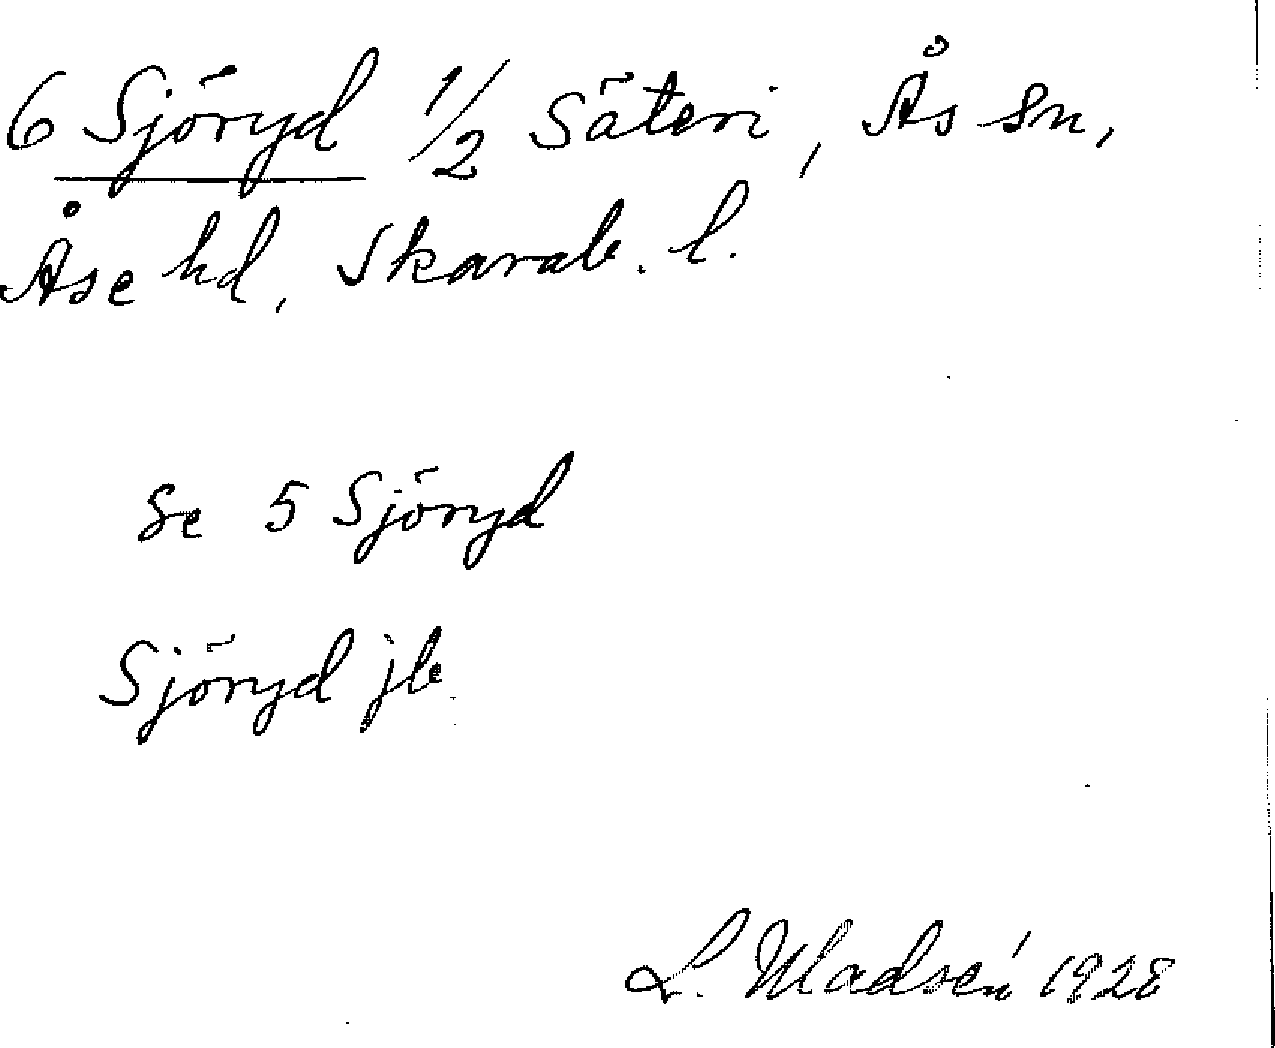 6 Sjöryd 1/2 Säteri, Ås sn,
Åse hd, Skarab. l.
Se 5 Sjöryd
Sjöryd jb
L. Uladsén 1928